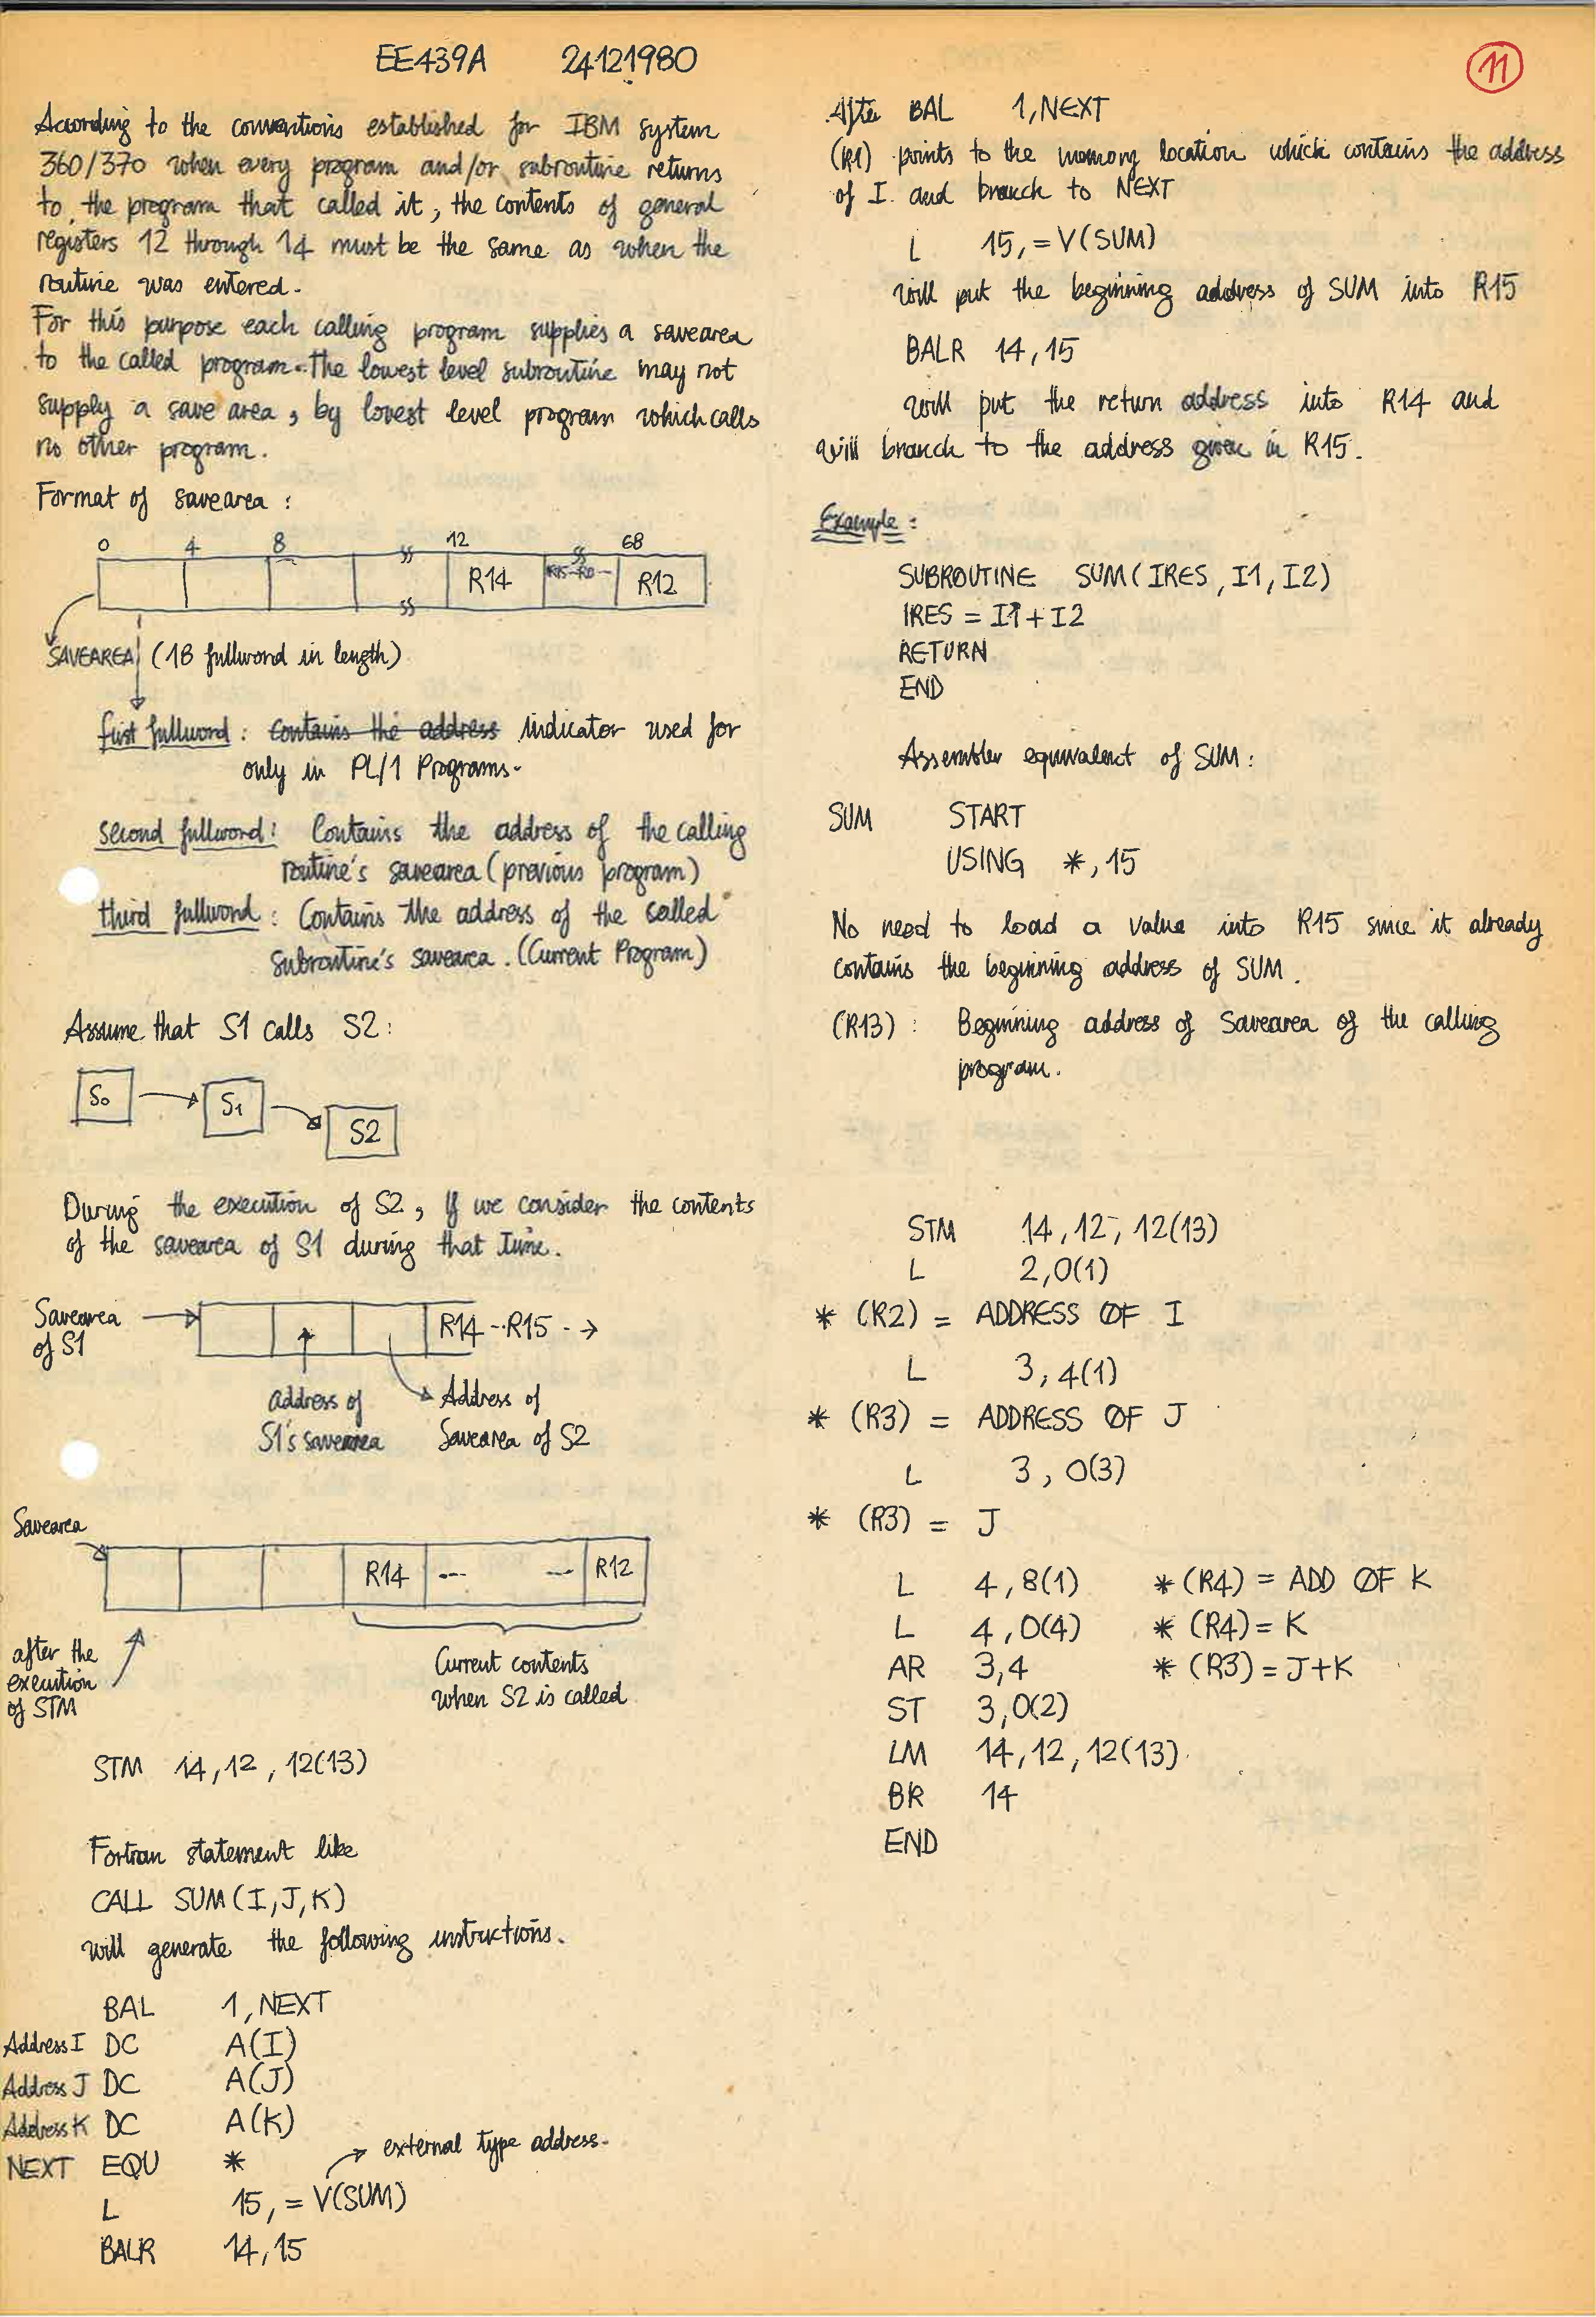 EE439A 24121980
11
According to the conventions established for IBM system
360/370 when every program and/or subroutine returns
to the program that called it, the contents of general
registers 12 through 14 must be the same as when the
routine was entered.
For this purpose each calling program supplies a savearea
to the called program. The lowest level subroutine may not
supply a save area, by lowest level program which calls
no other program.
Format of savearea :
0 4 8 12 68
R14 R15-R0-- R12
SAVEAREA (18 fullword in length)
first fullword : contains the address indicator used for
only in PL/1 Programs.
second fullword : Contains the address of the calling
routine's savearea (previous program)
third fullword : Contains the address of the called
subroutine's savearea. (Current Program)
Assume that S1 calls S2 :
S0 S1 S2
During the execution of S2, If we consider the contents
of the savearea of S1 during that time.
Savearea
of S1
R14 -- R15 - →
address of
S1's savearea
Address of
Savearea of S2
Savearea
R14 --- --- R12
after the
execution
of STM
Current contents
when S2 is called
STM 14,12, 12(13)
Fortran statement like
CALL SUM(I,J,K)
will generate the following instructions.
BAL 1,NEXT
Address I DC A(I)
Address J DC A(J)
Address K DC A(K)
NEXT EQU *
external type address.
L 15,=V(SUM)
BALR 14,15
After BAL 1,NEXT
(R1) points to the memory location which contains the address
of I. and branch to NEXT
L 15,=V(SUM)
will put the beginning address of SUM into R15
BALR 14,15
will put the return address into R14 and
will branch to the address given in R15.
Example :
SUBROUTINE SUM(IRES,I1,I2)
IRES = I1+I2
RETURN
END
Assembler equivalent of SUM :
SUM START
USING *,15
No need to load a value into R15 since it already
contains the beginning address of SUM.
(R13) : Beginning address of Savearea of the calling
program.
STM 14,12, 12(13)
L 2,0(1)
* (R2) = ADDRESS OF I
L 3,4(1)
* (R3) = ADDRESS OF J
L 3,0(3)
* (R3) = J
L 4,8(1) *(R4) = ADD OF K
L 4,0(4) * (R4)= K
AR 3,4 * (R3)=J+K
ST 3,0(2)
LM 14,12,12(13)
BR 14
END